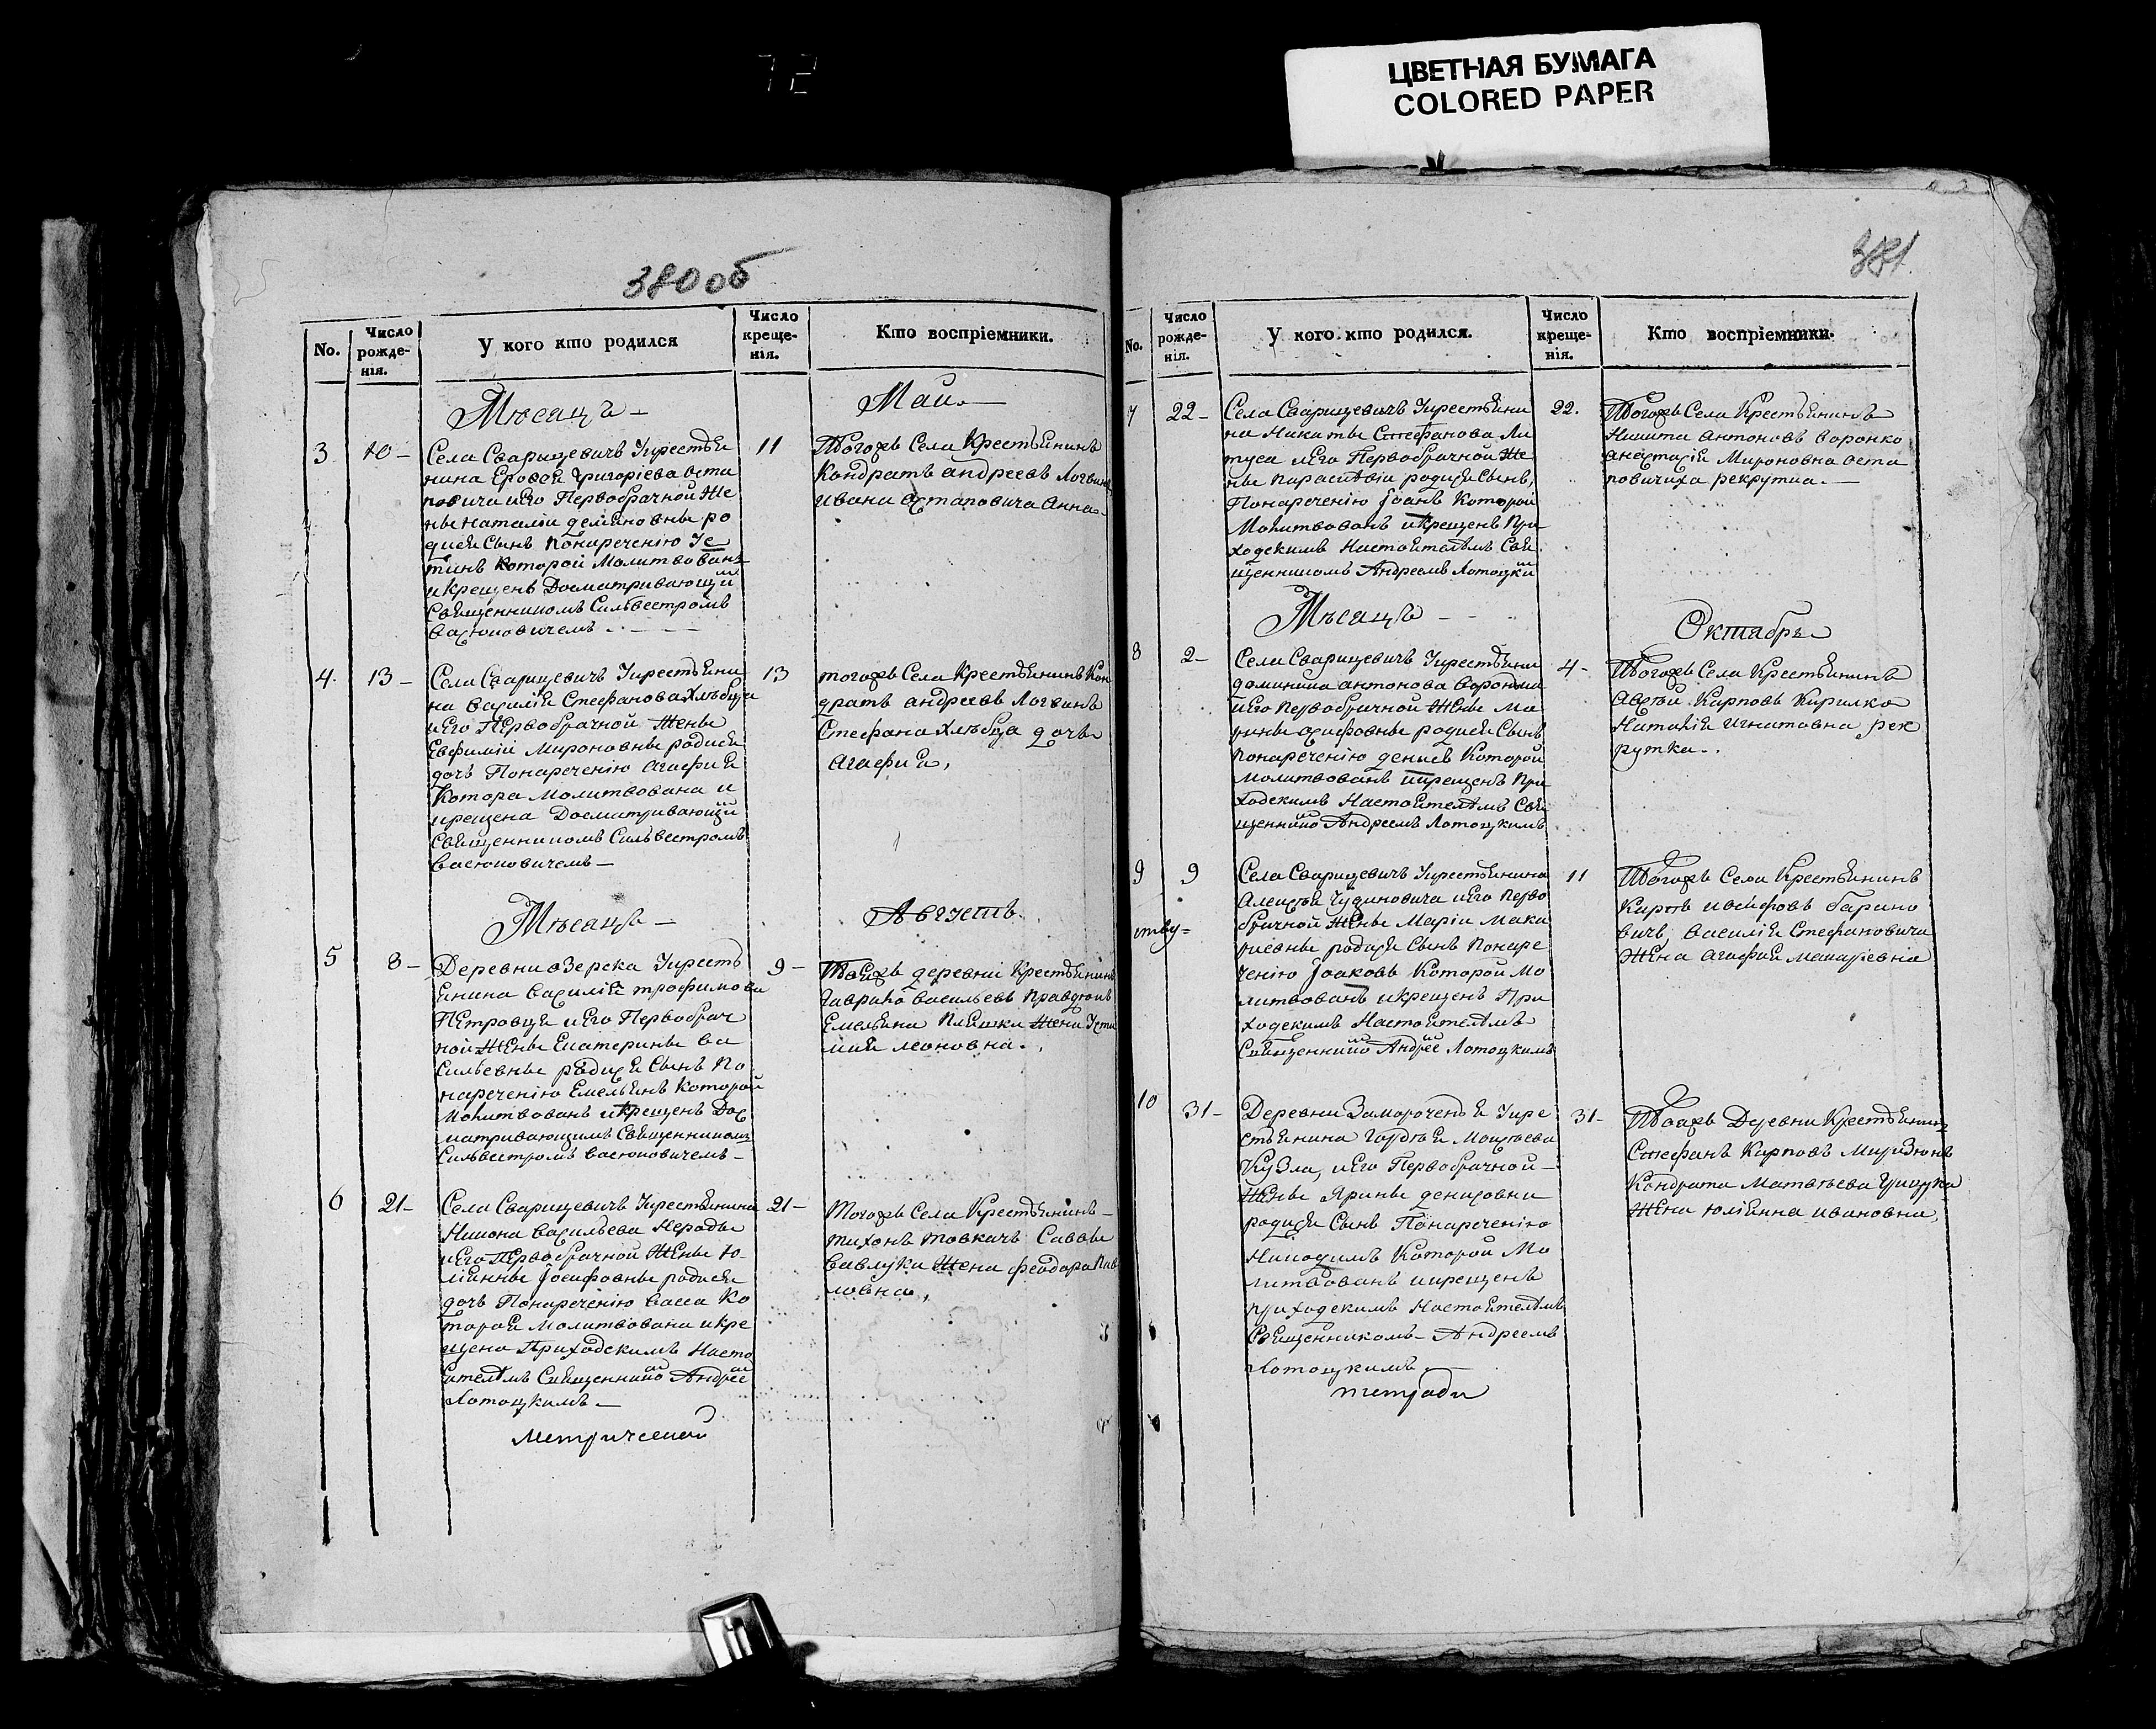 72
ЦВЕТНАЯ БУМАГА
COLORED PAPER
380 об
No.
Число рожде-нія.
У кого кто родился
Число креще-нія.
Кто воспріемники.
Мѣсацъ –
Маи. –
3. 10 –
Села Сварицевичъ Крестьѧ
нина Ерофеѧ Григоріева Оста
повича иего Первобрачной Же
ны Наталіи Демѧновны ро
дисѧ Сынъ Понареченію Iѹ
тинъ Которой Молитвованъ
икрещенъ Досматривающи
Свѧщенникомъ Сильвестромъ
Васюковичемъ
11
Тогожъ Села Крестьѧнинъ
Кондратъ Андреевъ Логвинъ
Ивана Остаповича Анна
4. 13 –
Села Сварицевичъ Крестьѧни
на Василіѧ Стефанова Хлѣбца
иего Первобрачной Жены
Евфиміи Мироновны родисѧ
дочь Понареченію Агафиѧ
Котора Молитвована и
крещена Досматривающи
Свѧщенникомъ Сильвестромъ
Васюковичемъ –
13
тогожъ Села Крестьѧнинъ Кон
дратъ Андреевъ Логвинъ
Стефана Хлѣбца дочь
Агафиѧ,
Мѣсацъ –
Августъ.
5 8 –
Деревни Озерска Крестъ
ѧнина Василіѧ Трофимова
Петровця иего Первобрач
ной Жены Екатерины Ва
сильевны родисѧ Сынъ По
нареченію Емельѧнъ Которой
Молитвованъ икрещенъ Дос
матривающимъ Свѧщенникомъ
Сильвестромъ Васюковичемъ –
9 –
Тоѧжъ деревни Крестьѧнинъ
Гаврило Васильевъ Правдюкъ
Емельѧна Плѧшки Жена Усти
миѧ леоновна.
6 21 –
Села Сварицевичъ Крестьѧнина
Никона Васильева Нероды
иего Первобрачной Жены Ю-
ліѧнны Іосифовны родисѧ
дочь Понареченію Васса Ко
тораѧ Молитвована икре
щена Приходскимъ Насто
ѧтелемъ Свѧщенико Андрее
Лотоцкимъ –
21 –
Тогожъ Села Крестьѧнинъ –
Тихонъ Товкачъ Саввы
Вавлуки Жена Феодора Пав
ловна,
Метрической
381
No.
Число рожде-нія.
У кого кто родился.
Число креще-нія.
Кто воспріемники.
7 22 –
Села Сварицевичъ Крестьѧни
на Никиты Стефанова Ли
туса иего Первобрачной Же
ны Параскевіи родисѧ Сынъ,
Понареченію Іоанъ Которой
Молитвованъ икрещенъ При
ходскимъ Настоѧтелемъ Свѧ
щенникомъ Андреемъ Лотоцки
22.
Тогожъ Села Крестьѧнинъ
Никита Антоновъ Воронко
Анастасіѧ Мироновна Оста
повичиха рекрутка. –
Мѣсацъ – –
Октабръ
8 2 –
Села Сварицевичъ Крестьѧни
доминика Антонова Воронки
иего Первобрачной Жены Ма
рины осифовны родисѧ Сынъ
Понареченію Денисъ Которой
Молитвованъ икрещенъ При
ходскимъ Настоѧтелемъ Свѧ
щеннико Андреемъ Лотоцкимъ
4 –
Тогожъ Села Крестьѧнинъ
Карповъ Кирилко
Наталіѧ Игнатовна рек
рутка.
9 9
Села Сварицевичъ Крестьѧнина
Алексѣѧ Чудиновича иего Перво
брачной Жены Маріи Мака
риевны родисѧ Сынъ Понаре
ченію Іоаковъ Которой Мо
литвованъ икрещенъ При
ходскимъ Настоѧтелемъ
Свѧщеннико Андрее Лотоцкимъ
11
Тогожъ Села Крестьѧнинъ
Карпъ Иосифовъ Гарино
вичъ, Василіѧ Стефановича
Жена Агафиѧ Макаріевна
10 31 –
Деревни Заморочень Ѧ Кре
стьѧнина Гордѣѧ Моисѣева
Кузла, иего Первобрачной –
Жены Ярины Денисовни
родисѧ Сынъ Понареченію
Никодимъ Которой Мо
литвованъ икрещенъ
приходскимъ Настоѧтелемъ
Свѧщенникомъ – Андреемъ
Лотоцкимъ –
31 –
Тоѧжъ Деревни Крестьѧнинъ
Стефанъ Карповъ
Кондрата Матвѣева
Жена Юліѧнна Ивановна,
тетради